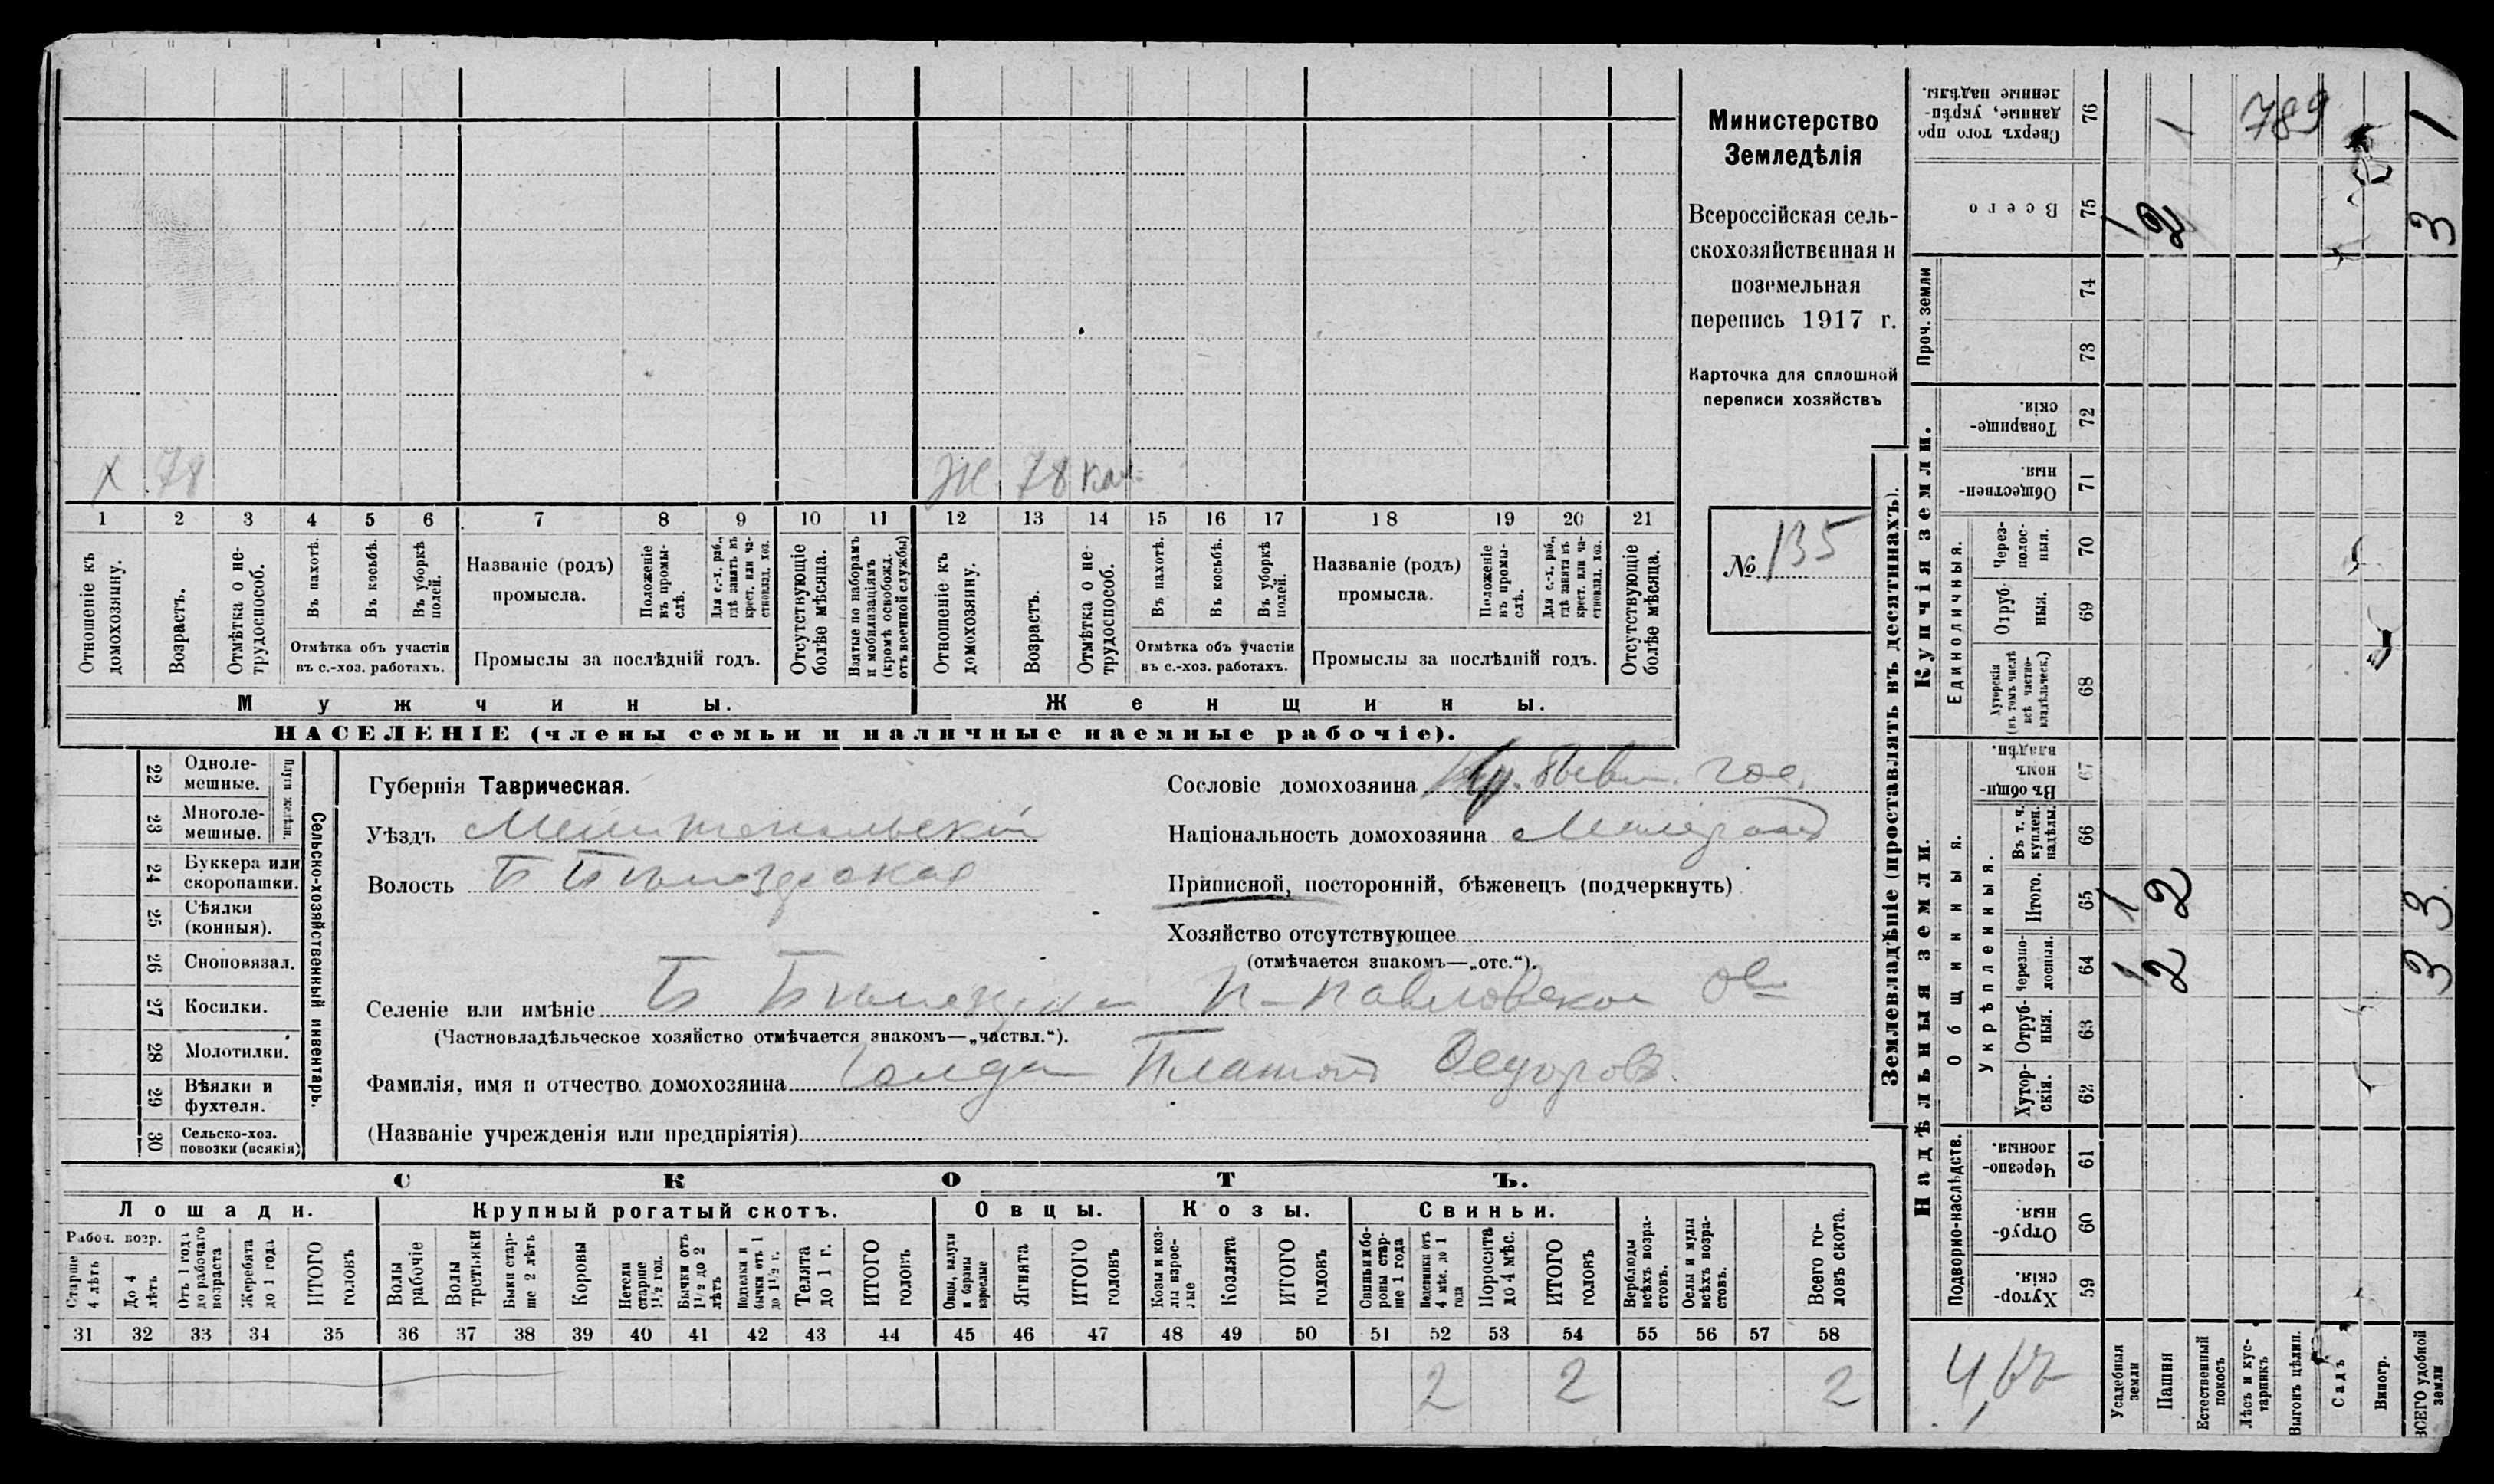 Министерство
Земледѣлія
Всероссійская сель-
скохозяйственная и
поземельная
перепись 1917 г.
Карточка для сплошной
переписи хозяйствъ
№ 135
х 78
Ж 78
1 2 3 4 5 6 7 8 9 10 11 12 13 14 15 16 17 18 19 20 21
Отношеніе къ домохозяину.
Возрастъ.
Отмѣтка о не-трудоспособ.
Въ пахотѣ.
Въ косьбѣ.
Въ уборкѣ полей.
Отмѣтка объ участіи
въ с.-хоз. работахъ.
Названіе (родъ)
промысла.
Положеніе въ промы-слѣ.
Для с.-х. раб., гдѣ занятъ въ крест. или ча-стновлад. хоз.
Промыслы за послѣдній годъ.
Отсутствующіе болѣе мѣсяца.
Взятые по наборамъ и мобилизаціямъ (кромѣ освобожд. отъ военной службы)
Отношеніе къ домохозяину.
Возрастъ.
Отмѣтка о не-трудоспособ.
Въ пахотѣ.
Въ косьбѣ.
Въ уборкѣ полей.
Отмѣтка объ участіи
въ с.-хоз. работахъ.
Названіе (родъ)
промысла.
Положеніе въ промы-слѣ.
Для с.-х. раб., гдѣ занята въ крест. или ча-стновлад. хоз.
Промыслы за послѣдній годъ.
Отсутствующіе болѣе мѣсяца.
Мужчины.
Женщины.
НАСЕЛЕНІЕ (члены семьи и наличные наемные рабочіе).
22 Одноле-мешные.
23 Многоле-мешные.
Плуги желѣзн.
24 Буккера или скоропашки.
25 Сѣялки (конныя).
26 Сноповязал.
27 Косилки.
28 Молотилки.
29 Вѣялки и фухтеля.
30 Сельско-хоз. повозки (всякія)
Сельско-хозяйственный инвентарь.
Губернія Таврическая.
Уѣздъ Мелитопольскій
Волость Б Бѣлозерская
Сословіе домохозяина
Національность домохозяина
Приписной, посторонній, бѣженецъ (подчеркнуть)
Хозяйство отсутствующее
(отмѣчается знакомъ—„отс.“).
Селеніе или имѣніе Б Бѣлозерка П-Павловское
(Частновладѣльческое хозяйство отмѣчается знакомъ—„частвл.“).
Фамилія, имя и отчество домохозяина Платонъ Федоровъ
(Названіе учрежденія или предпріятія)
СКОТЪ.
Лошади.
Крупный рогатый скотъ.
Овцы.
Козы.
Свиньи.
Рабоч. возр.
Старше 4 лѣтъ
До 4 лѣтъ
Отъ 1 года до рабочаго возраста
Жеребята до 1 года
ИТОГО головъ
Волы рабочіе
Волы третьяки
Быки стар-ше 2 лѣтъ
Коровы
Нетели старше 1½ год.
Бычки отъ 1½ до 2 лѣтъ
Подтелки и бычки отъ 1 до 1½ г.
Телята до 1 г.
ИТОГО головъ
Овцы, валухи и бараны взрослые
Ягнята
ИТОГО головъ
Козы и коз-лы взрос-лые
Козлята
ИТОГО головъ
Свиньи и бо-ровы стар-ше 1 года
Подсвинки отъ 4 мѣс. до 1 года
Поросята до 4 мѣс.
ИТОГО головъ
Верблюды всѣхъ возра-стовъ.
Ослы и мулы всѣхъ возра-стовъ.
Всего го-ловъ скота.
31 32 33 34 35 36 37 38 39 40 41 42 43 44 45 46 47 48 49 50 51 52 53 54 55 56 57 58
2 2 2
Землевладѣніе (проставлять въ десятинахъ).
Купчія земли.
Надѣльныя земли.
Сверхъ того про-данные, укрѣп-ленные надѣлы. 76 1 789 1
Всего 75 1 2 3
Проч. земли 74
73
Товарище-скія. 72
Обществен-ныя. 71
Единоличныя.
Через-полос-ныя. 70
Отруб-ныя. 69
Хуторскія (въ томъ числѣ всѣ частно-владѣльческ.) 68
Общинныя.
Въ общин-номъ владѣн. 67
Укрѣпленныя.
Въ т. ч. куплен. надѣлы. 66
Итого. 65 1 2 3
Черезпо-лосныя. 64 1 2 3
Отруб-ныя. 63
Хутор-скія. 62
Подворно-наслѣдств.
Черезпо-лосныя. 61
Отруб-ныя. 60
Хутор-скія. 59
Усадебныя земли
Пашня
Естественный покосъ
Лѣсъ и кус-тарникъ
Выгонъ цѣлин.
Садъ
Виногр.
ВСЕГО удобной земли